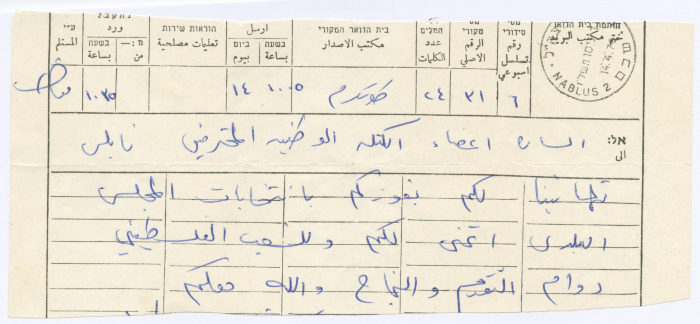 חותמת בית הדואר
ختم مكتب البريد
NABLUS 2
14.4.76
מס'
סידורי
رقم
تسلسل
اسبوعي
מס'
מקורי
الرقم
الاصلي
המלים
עدد
الكلمات
בית הדואר המקורי
مكتب الاصدار
ארסל
ارسل
ביום בשעה
بيوم بساعة
הוראות שירות
تعليمات مصلحية
ورد
בשעה
بساعة
מ:—
من
ע״י
المستلم
٦ ٣١ ٢٤ طولكرم ١٠٠٥ ١٤ ١٠٣٥
אל: السادة اعضاء الكتله الوطنيه المحترمين نابلس
الى
تهانينا لكم بفوزكم بانتخابات المجلس
البلدي اتمنى لكم وللشعب الفلسطيني
دوام التقدم والنجاح والله معكم